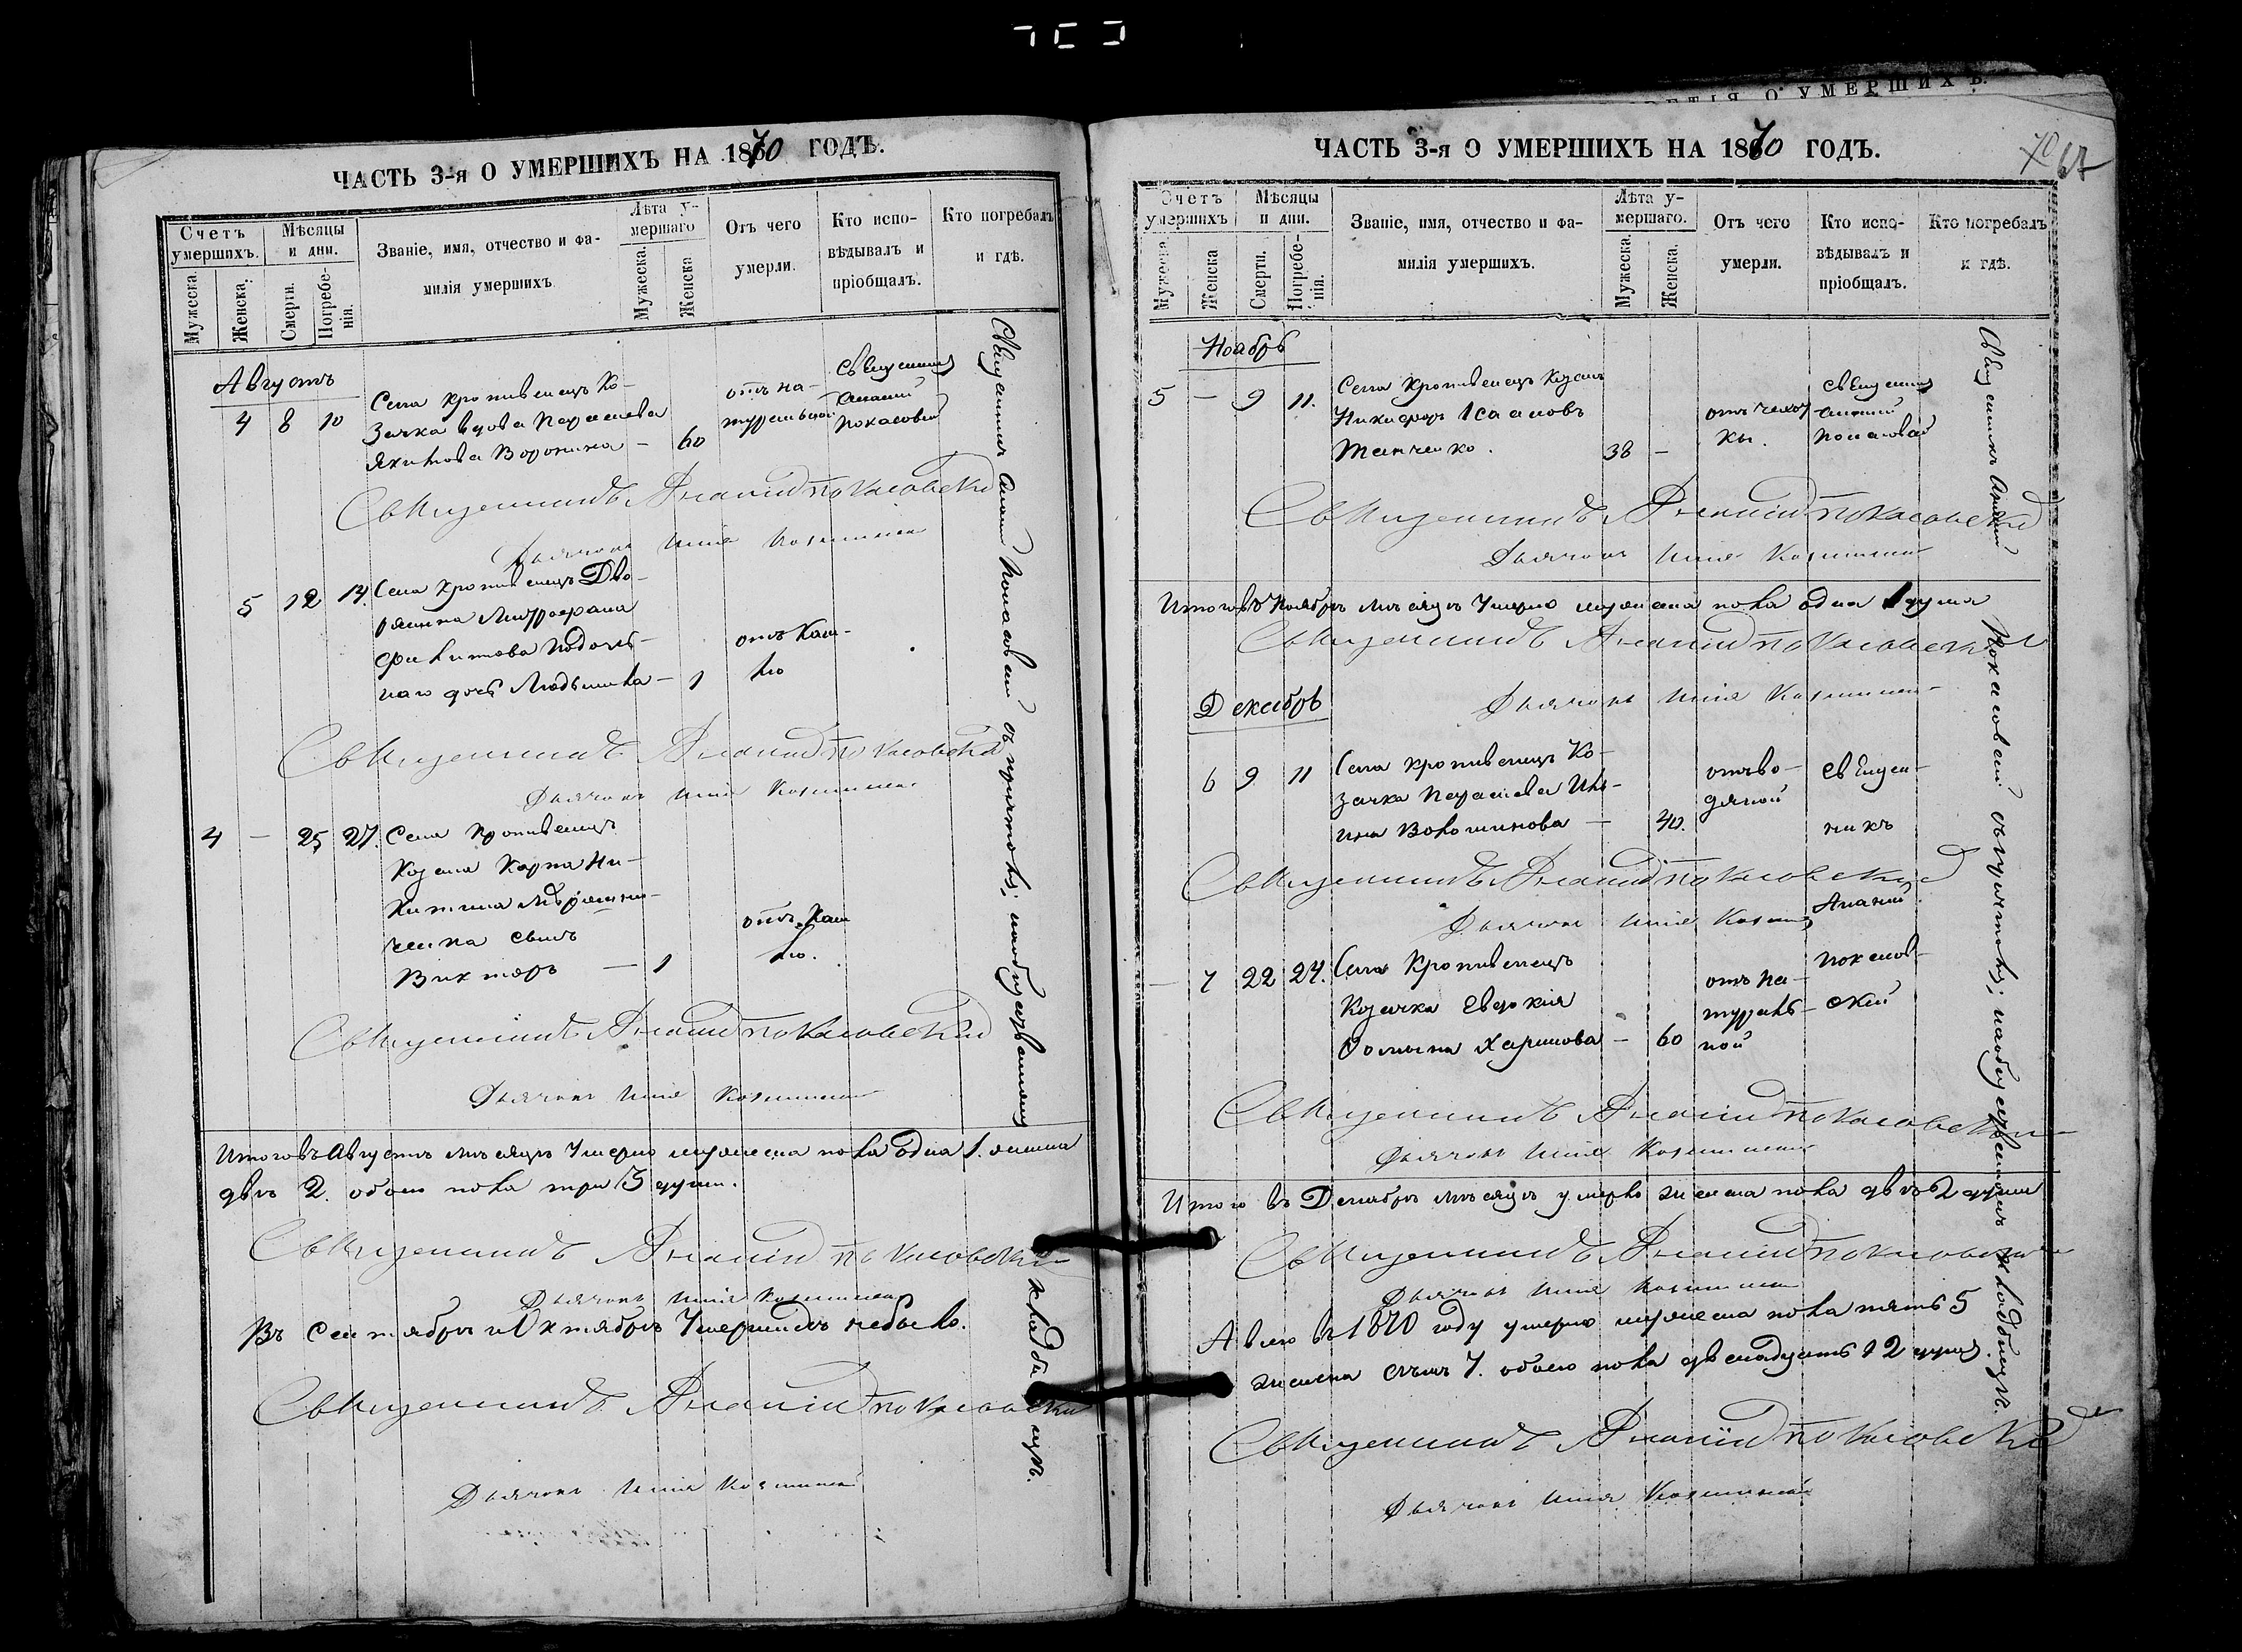 ЧАСТЬ 3-я О УМЕРШИХЪ НА 1870 ГОДЪ.
Счетъ умершихъ.
Мѣсяцы и дни.
Званіе, имя, отчество и фамилія умершихъ
Лѣта умершаго
Отъ чего умерли.
Кто исповѣдывалъ и пріобщалъ.
Кто погребалъ и гдѣ.
Мужеска.
Женска.
Смерти.
Погребенія.
Мужеска.
Женска
Августъ
4 8 10
Села Кропивенецъ Ко-
зачка вдова Параскева
Якимова Воронина — 60
отъ на-
туральной
Священникъ
Ананій
Покасовскій
Священникъ Ананій Покасовскій
Дьячокъ Илія
5 12 14.
Села Кропивенецъ Дво-
рянина Митрофана
Филипова Подоль-
наго дочь Людмила — 1
отъ каш-
лю
Священникъ Ананій Покасовскій
Дьячокъ Илія
4 — 25 27.
Села Кропивенецъ
Козака Карпа Ни-
китина
ченка сынъ
Викторъ — 1
отъ каш
лю.
Священникъ Ананій Покасовскій
Дьячокъ Илія
Итого въ Августѣ мѣсяцѣ умерло мужеска пола одна 1. женска
двѣ 2. обоего пола три 3 души.
Священникъ Ананій Покасовскій
Дьячокъ Илія
Въ Сентябрѣ и Октябрѣ умершихъ небыло.
Священникъ Ананій Покасовскій
Дьячокъ Илія
Священникъ Ананій Покасовскій съ причтомъ; на общественномъ кладбищѣ.
О УМЕРШИХЪ.
ЧАСТЬ 3-я О УМЕРШИХЪ НА 1870 ГОДЪ.
70 67
Счетъ умершихъ
Мѣсяцы и дни.
Званіе, имя, отчество и фамилія умершихъ.
Лѣта умершаго.
Отъ чего умерли.
Кто исповѣдывалъ и пріобщалъ.
Кто погребалъ и гдѣ.
Мужеска.
Женска
Смерти.
Погребенія.
Мужеска.
Женска.
Ноябрь
5 — 9 11.
Села Кропивенецъ Козакъ
Никифоръ Исааковъ
Танченко. 38 —
отъ чахот
ки.
Священникъ
Ананій
Покасовскій
Священникъ Ананій Покасовскій
Дьячокъ Илія
Итого въ Ноябрѣ мѣсяцѣ умерло мужеска пола одна 1 душа
Священникъ Ананій Покасовскій
Дьячокъ Илія
Декабрь
6 9 11
Села Кропивенецъ Ко-
зачка Параскева Иль-
ина Волошинова — 40.
отъ во-
дяной
Священ-
никъ
Священникъ Ананій Покасовскій
Дьячокъ Илія
Ананій
— 7 22 24.
Села Кропивенецъ
Козачка Евдокія
Фомина Харитова — 60
отъ на-
тураль-
ной
Покасов-
скій
Священникъ Ананій Покасовскій
Дьячокъ Илія
Итого въ Декабрѣ мѣсяцѣ умерло женска пола двѣ 2 души
Священникъ Ананій Покасовскій
Дьячокъ Илія
А всего въ 1870 году умерло мужеска пола пять 5
женска семь 7. обоего пола двенадцать 12 душъ.
Священникъ Ананій Покасовскій
Дьячокъ Илія
Священникъ Ананій Покасовскій съ причтомъ; на общественномъ кладбищѣ.